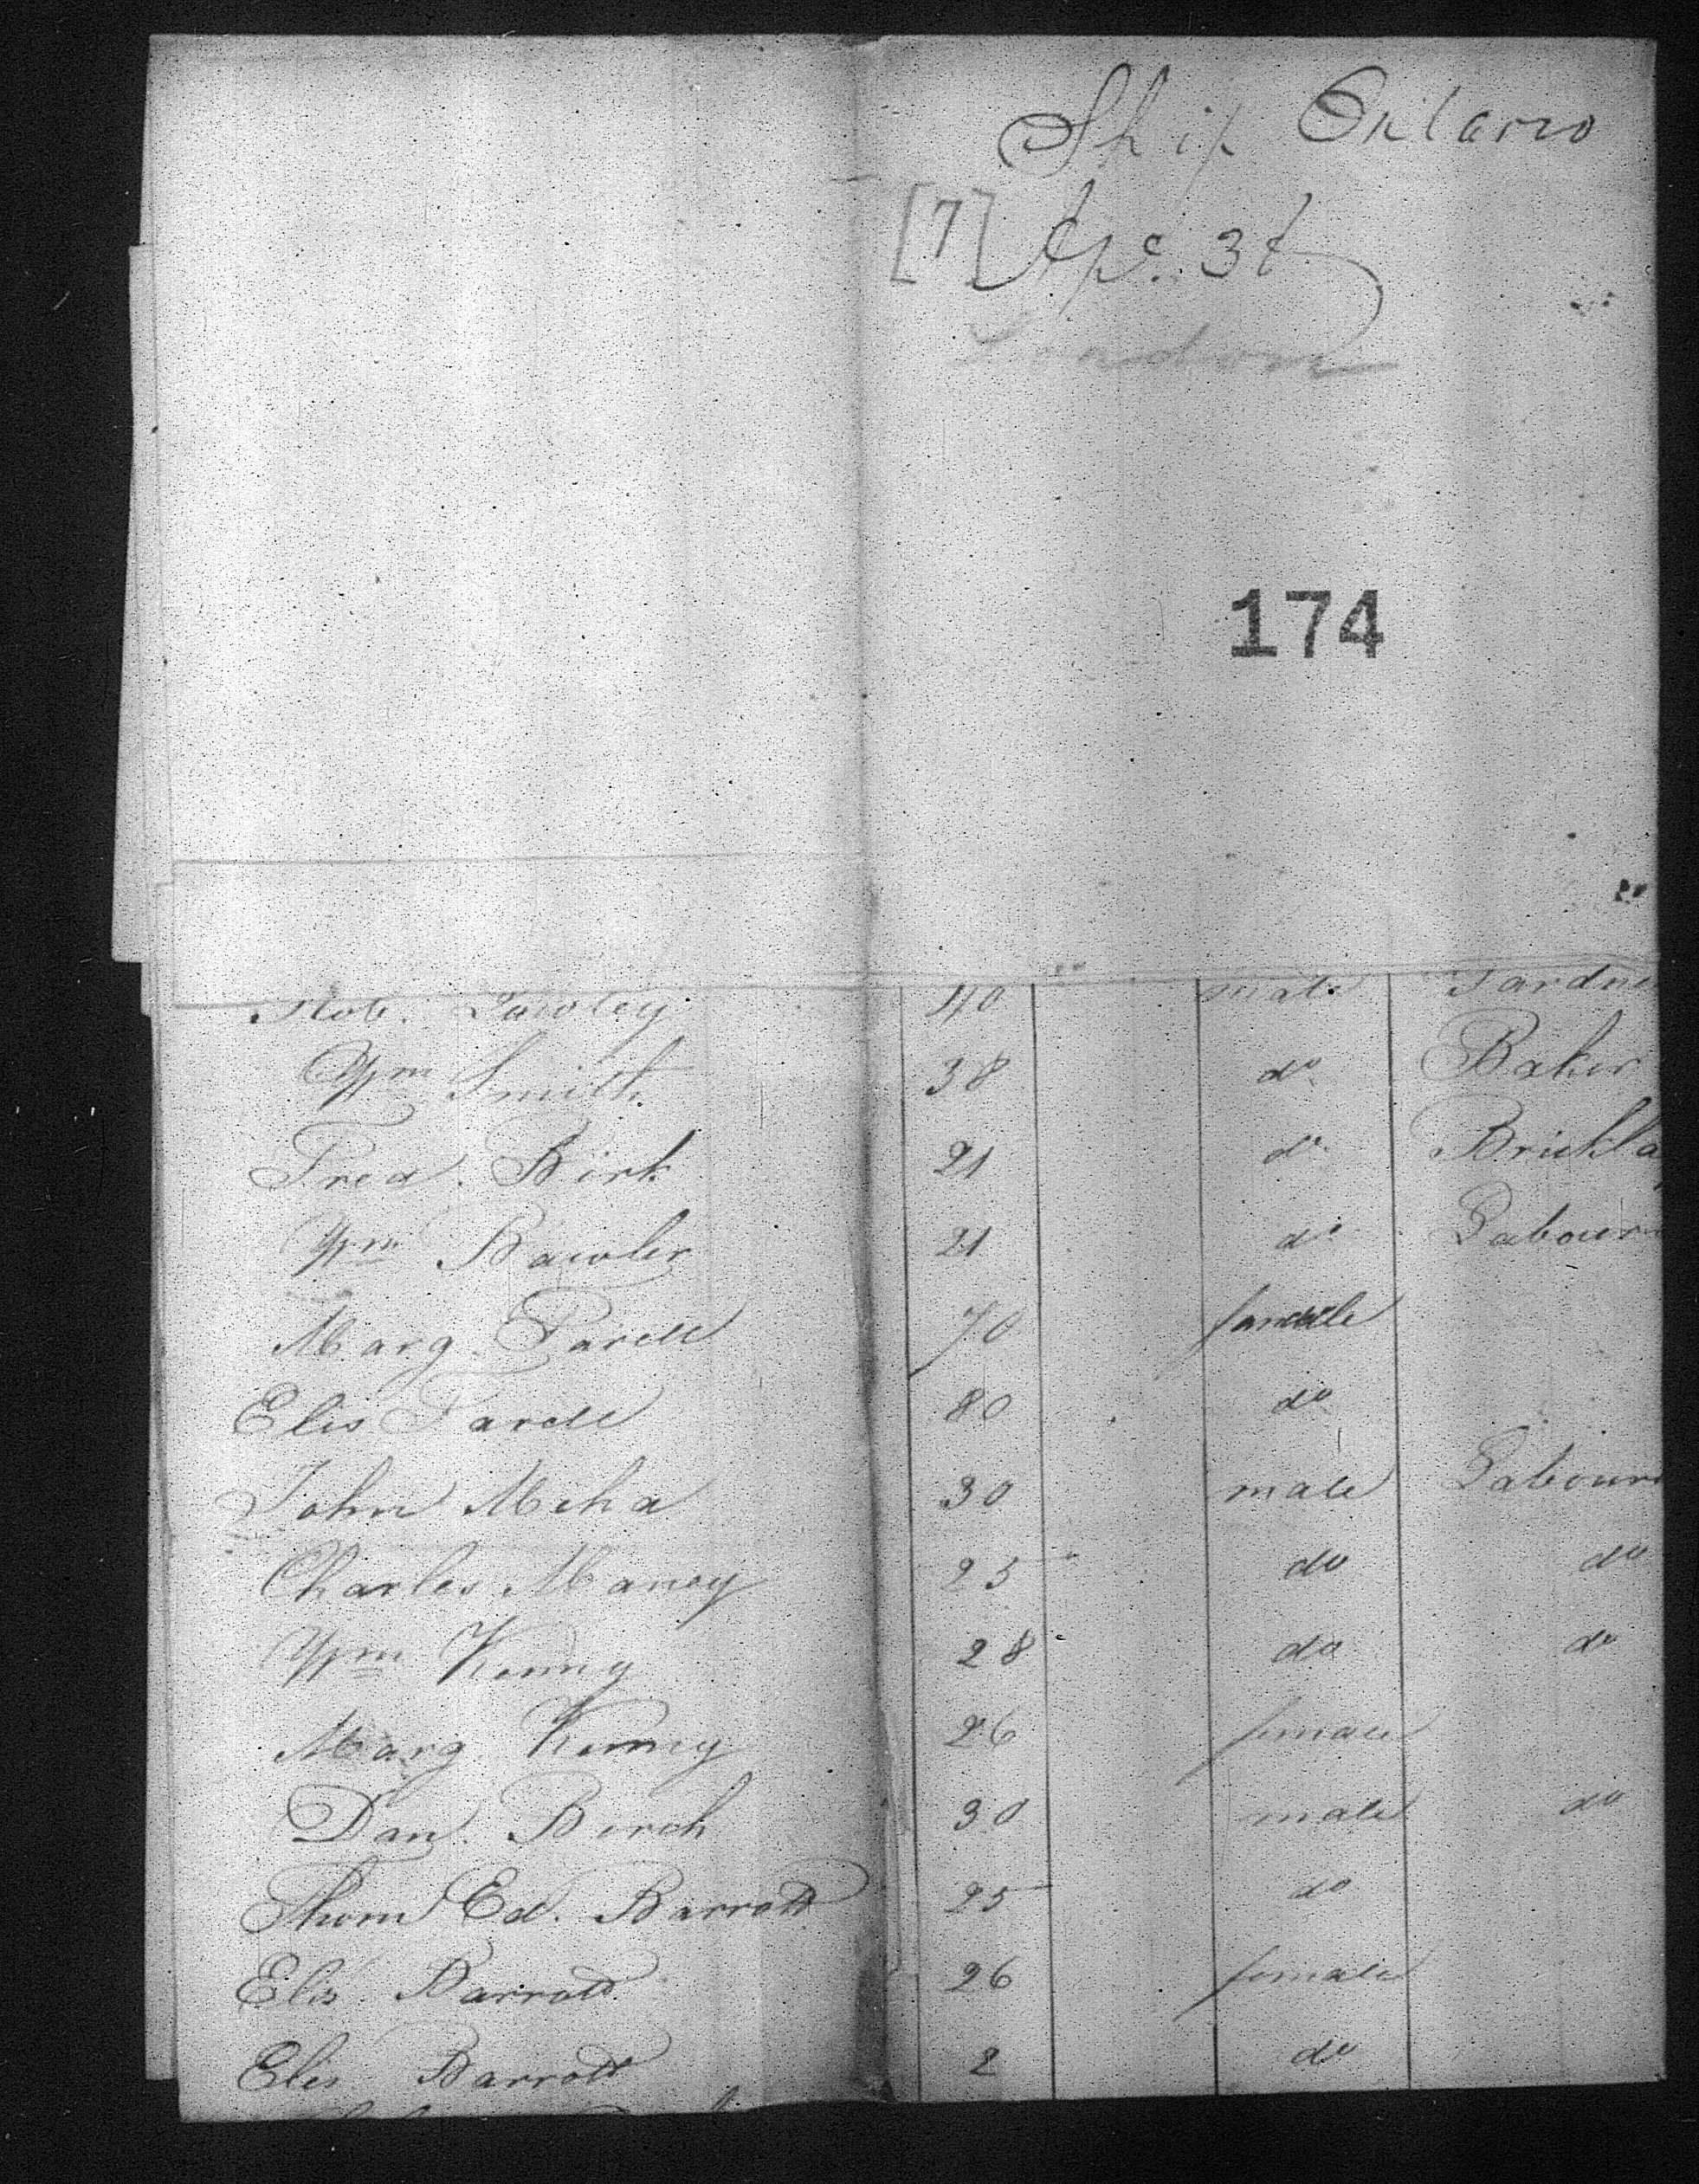 Ship Ontario
[7] Apl. 3d
London
174
Rob. Lawley 40 male Gardne
Wm Smith 38 do Baker
Fred. Birk 21 do Brickla
Wm Bawler 21 do Labour
Marg. Farell 70 female
Elis Farell 80 do
John Meha 30 male Labour
Charles Maney 25 do do
Wm Kenny 28 do do
Marg Kenny 26 female
Dan. Burch 30 male do
Thom Ed. Barrott 25 do
Elis Barrott 26 female
Elis Barrott 2 do